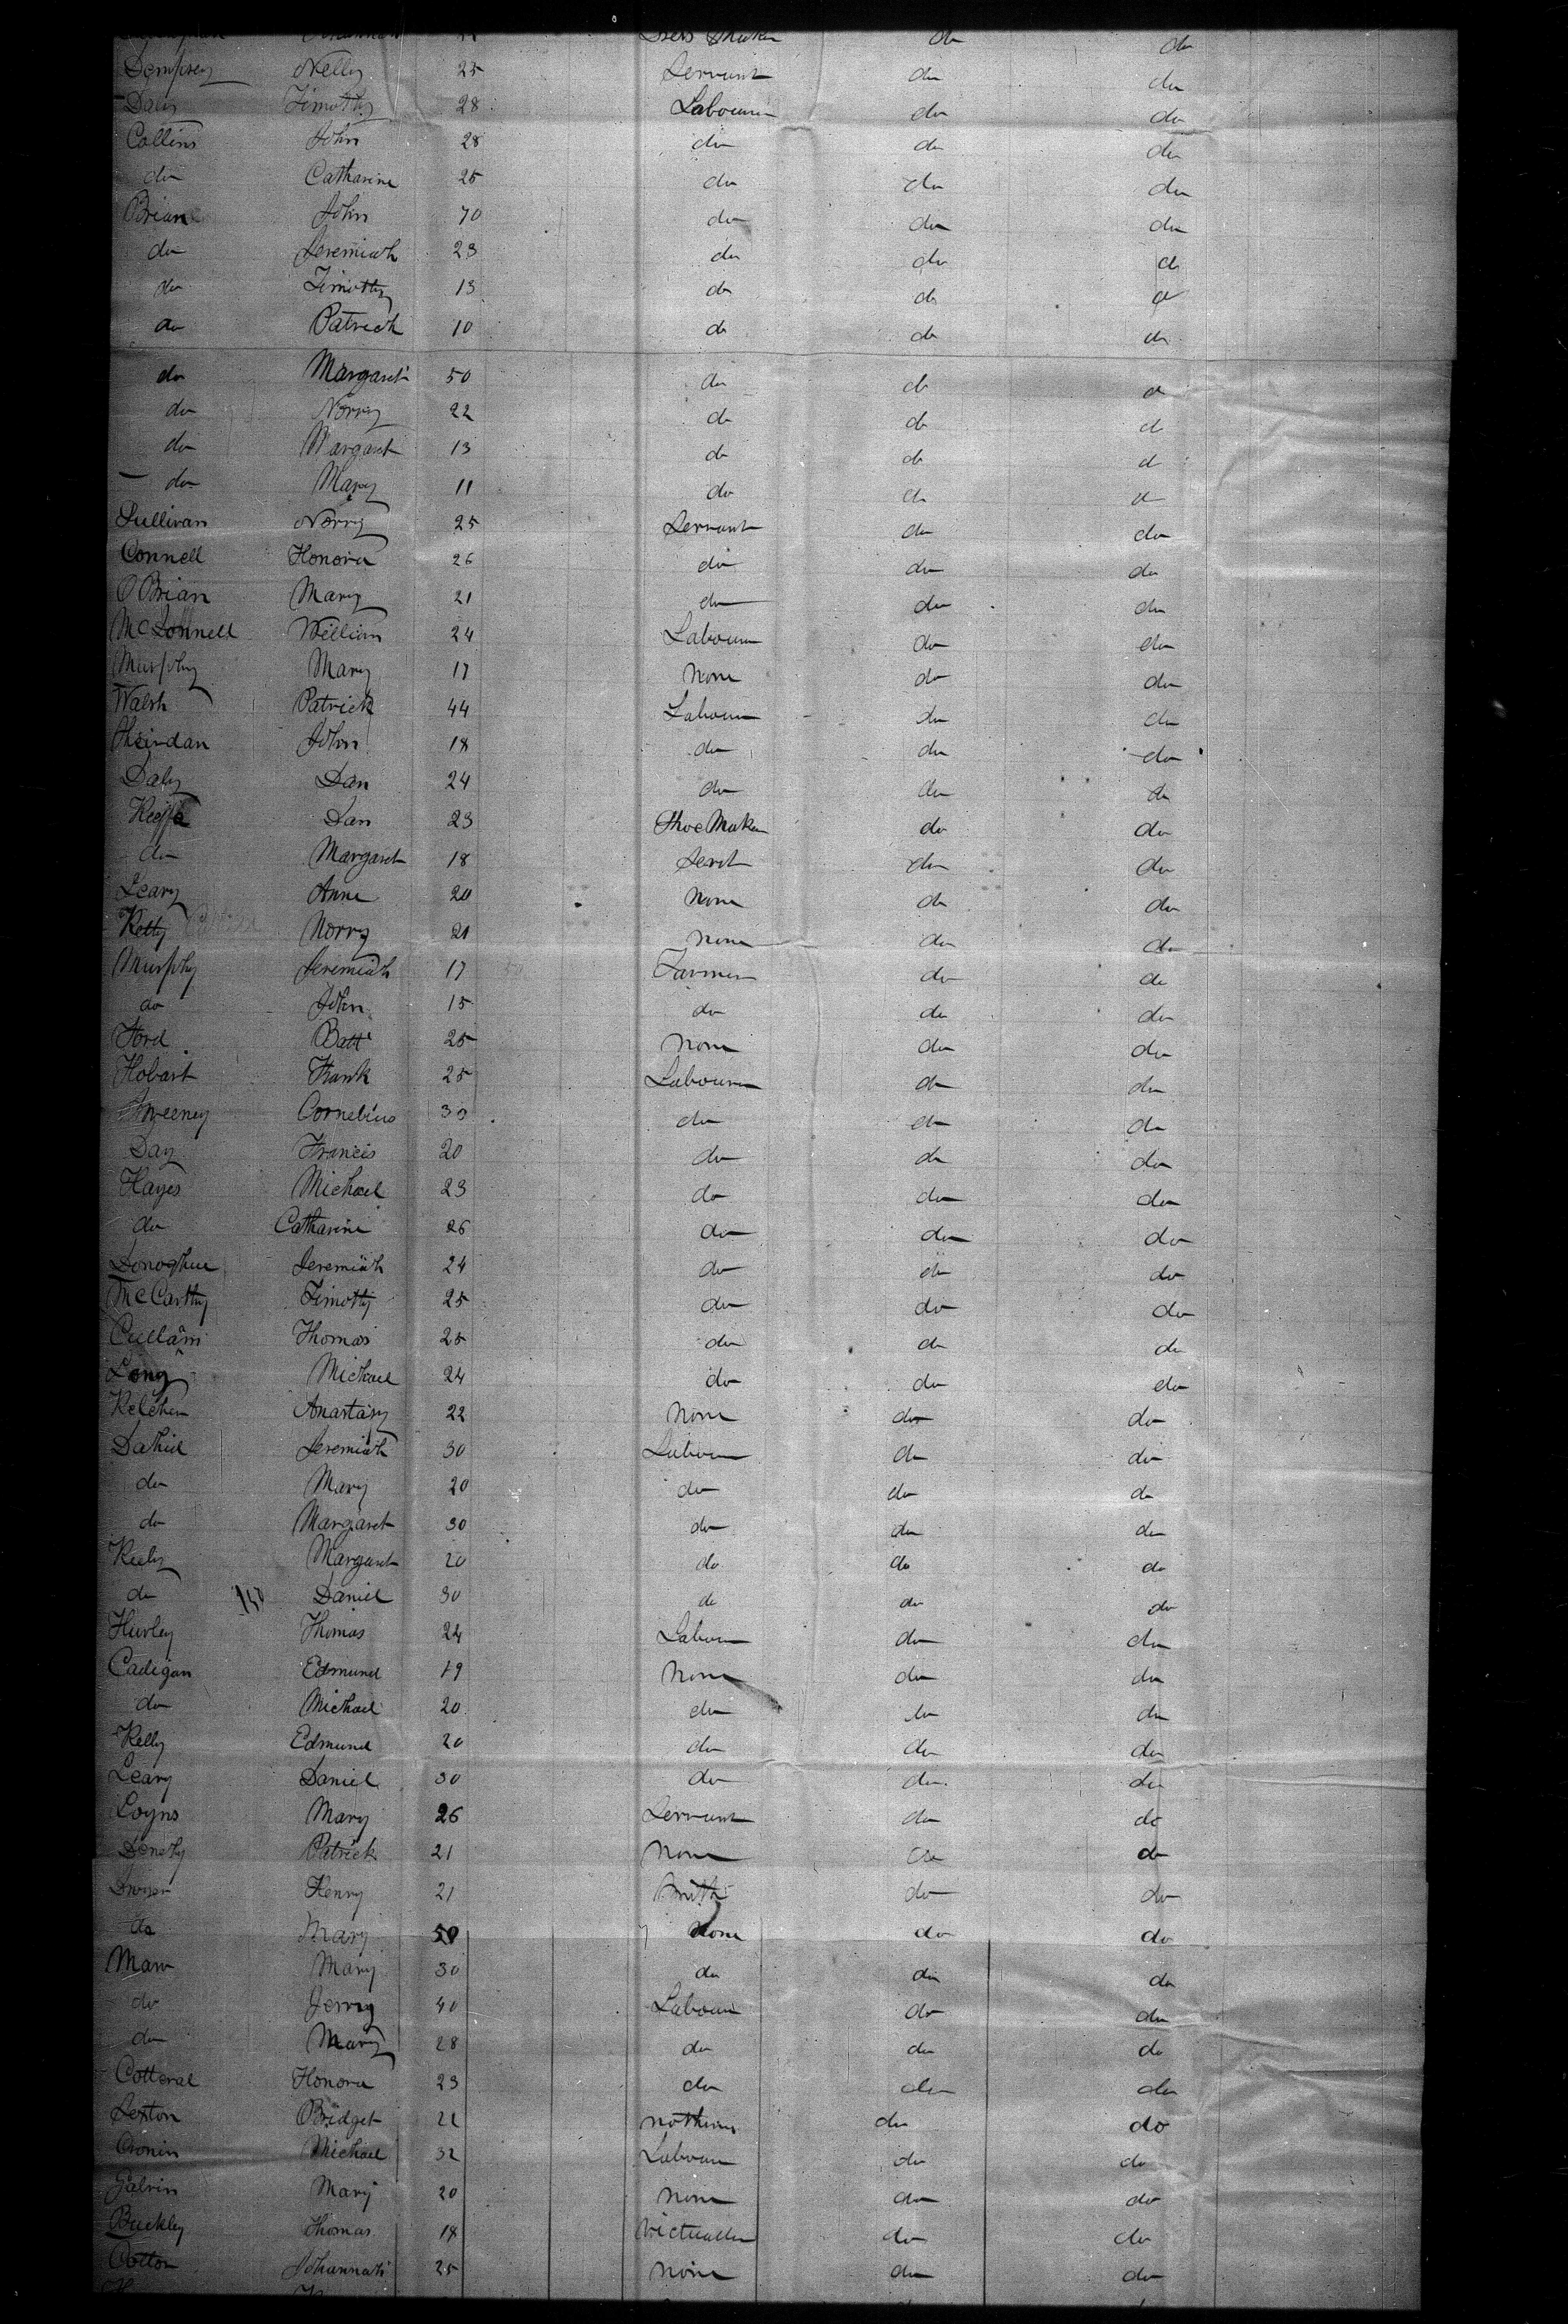 Dress Maker do do
Dempsey Nelly 25 Servant do do
Daly Timothy 28 Labourer do do
Collins John 28 do do do
do Catharine 25 do do do
Brian John 70 do do do
do Jeremiah 23 do do do
do Timothy 13 do do do
do Patrick 10 do do do
do Margaret 50 do do do
do Norry 22 do do do
do Margaret 13 do do do
do Mary 11 do do do
Sullivan Norry 25 Servant do do
Connell Honora 26 do do do
O Brian Mary 21 do do do
McDonnell William 24 Labourer do do
Murphy Mary 17 None do do
Walsh Patrick 44 Labourer do do
Sheirdan John 18 do do do
Daly Dan 24 do do do
Keiffe Dan 23 Shoe Maker do do
do Margaret 18 Servt do do
Leary Anne 20 None do do
Norry 21 none do do
Murphy Jeremiah 17 Farmer do do
do John 15 do do do
Ford Batt 25 None do do
Hobart Frank 25 Labourer do do
Sweeney Cornelius 30 do do do
Day Francis 20 do do do
Hayes Michael 23 do do do
do Catharine 26 do do do
Donoghue Jeremiah 24 do do do
McCarthy Timothy 25 do do do
Thomas 25 do do do
Long Michael 24 do do do
Anastasy 22 None do do
Jeremiah 30 Labourer do do
do Mary 20 do do do
do Margaret 30 do do do
Margaret 20 do do do
do Daniel 30 do do do
Hurley Thomas 24 Labour do do
Cadigan Edmund 19 None do do
do Michael 20 do do do
Kelly Edmund 20 do do do
Leary Daniel 30 do do do
Coyns Mary 26 Servant do do
Patrick 21 None do do
Henry 21 Smith do do
do Mary 50 None do do
Mary 30 do do do
do Jerry 40 Labour do do
do Mary 28 do do do
Cotteral Honora 23 do do do
Sexton Bridget 22 nothing do do
Cronin Michael 32 Labour do do
Galvin Mary 20 none do do
Buckley Thomas 18 Victualler do do
Cotton Johannah 25 none do do